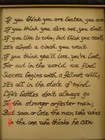 If you think you are beaten, you are.
If you think you dare not, you don't.
If you like to win, but think you can't,
It's almost a cinch you won't.
If you think you'll lose, you're lost,
For out in the world, we find
Success begins with a fellow's will,
It's all in the state of mind.
Life's battles don't always go
To the stronger or faster man;
But soon or late the man who wins
Is the one who thinks he can.